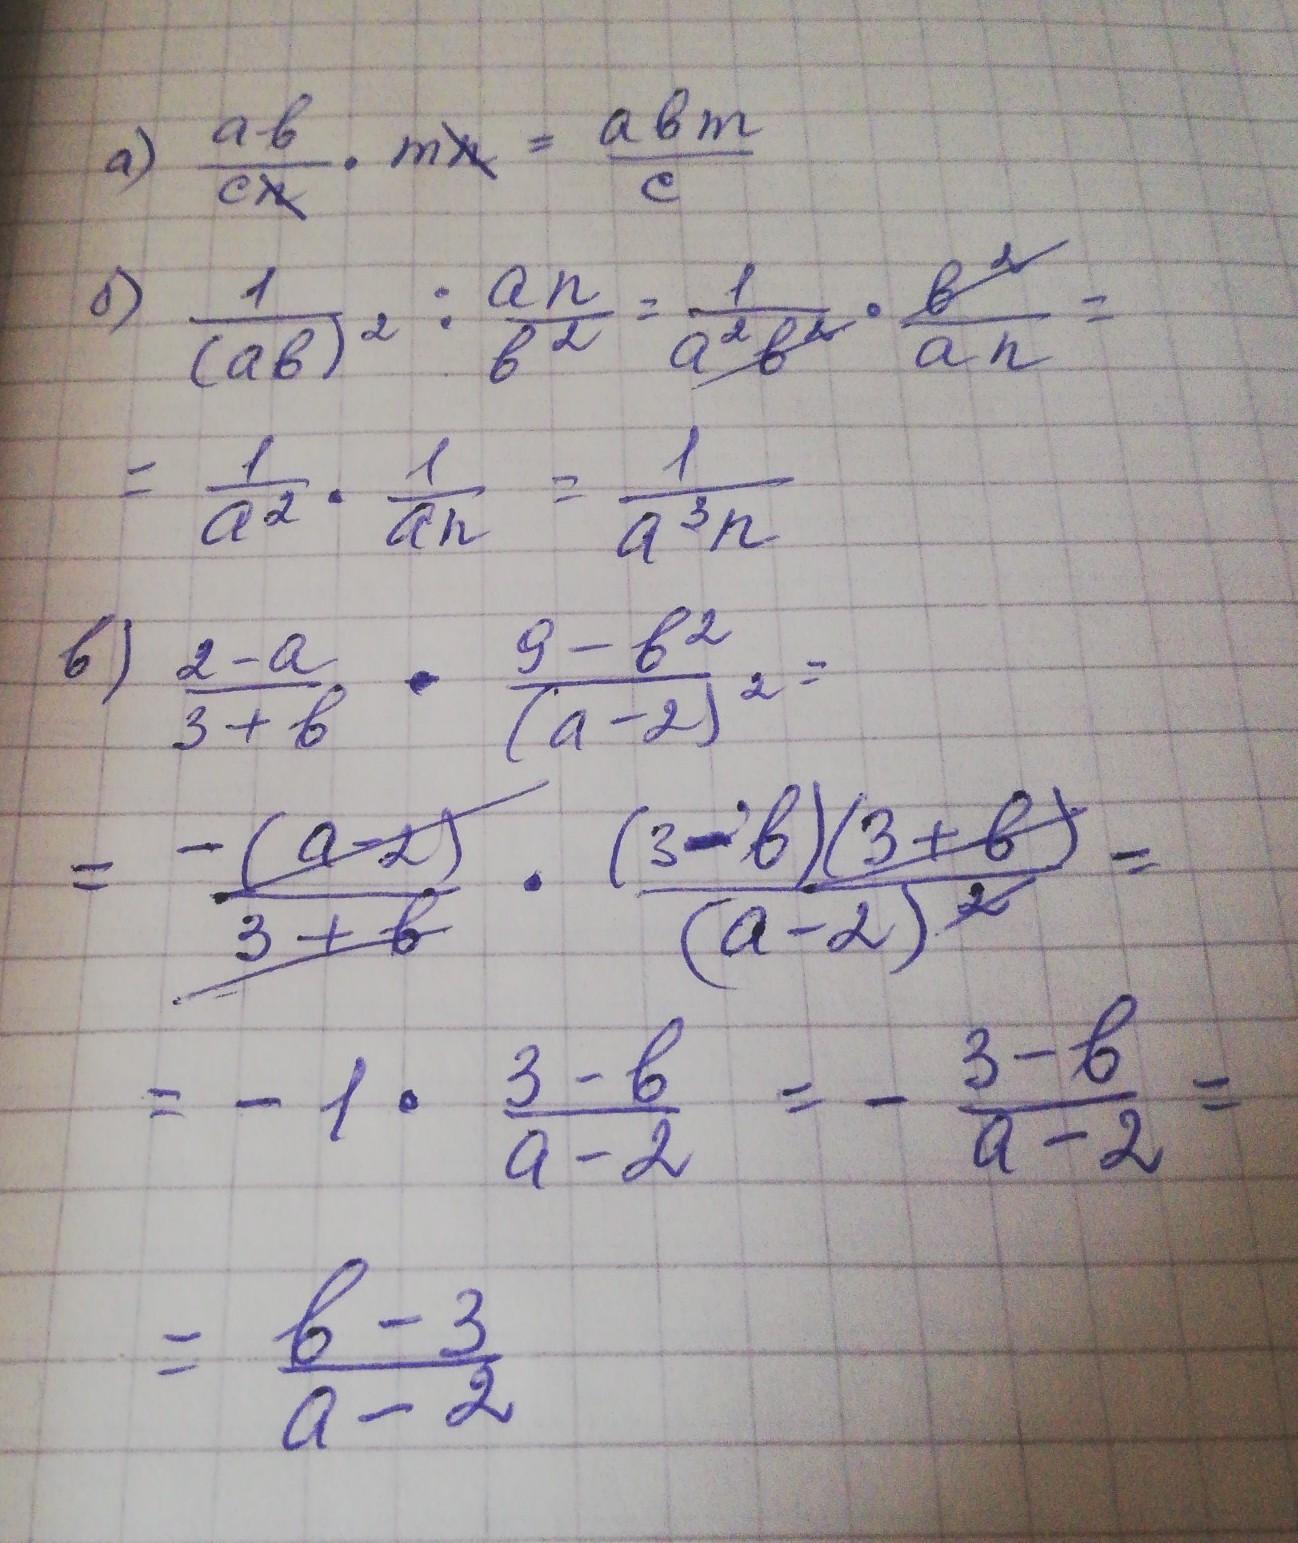 а) ab/cx · mx = abm/c
б) 1/(ab)² : an/b² = 1/a²b² · b²/an =
= 1/a² · 1/an = 1/a³n
в) 2-a/3+b · 9-b²/(a-2)² =
= -(a-2)/3+b · (3-b)(3+b)/(a-2)² =
= -1 · 3-b/a-2 = - 3-b/a-2 =
= b-3/a-2